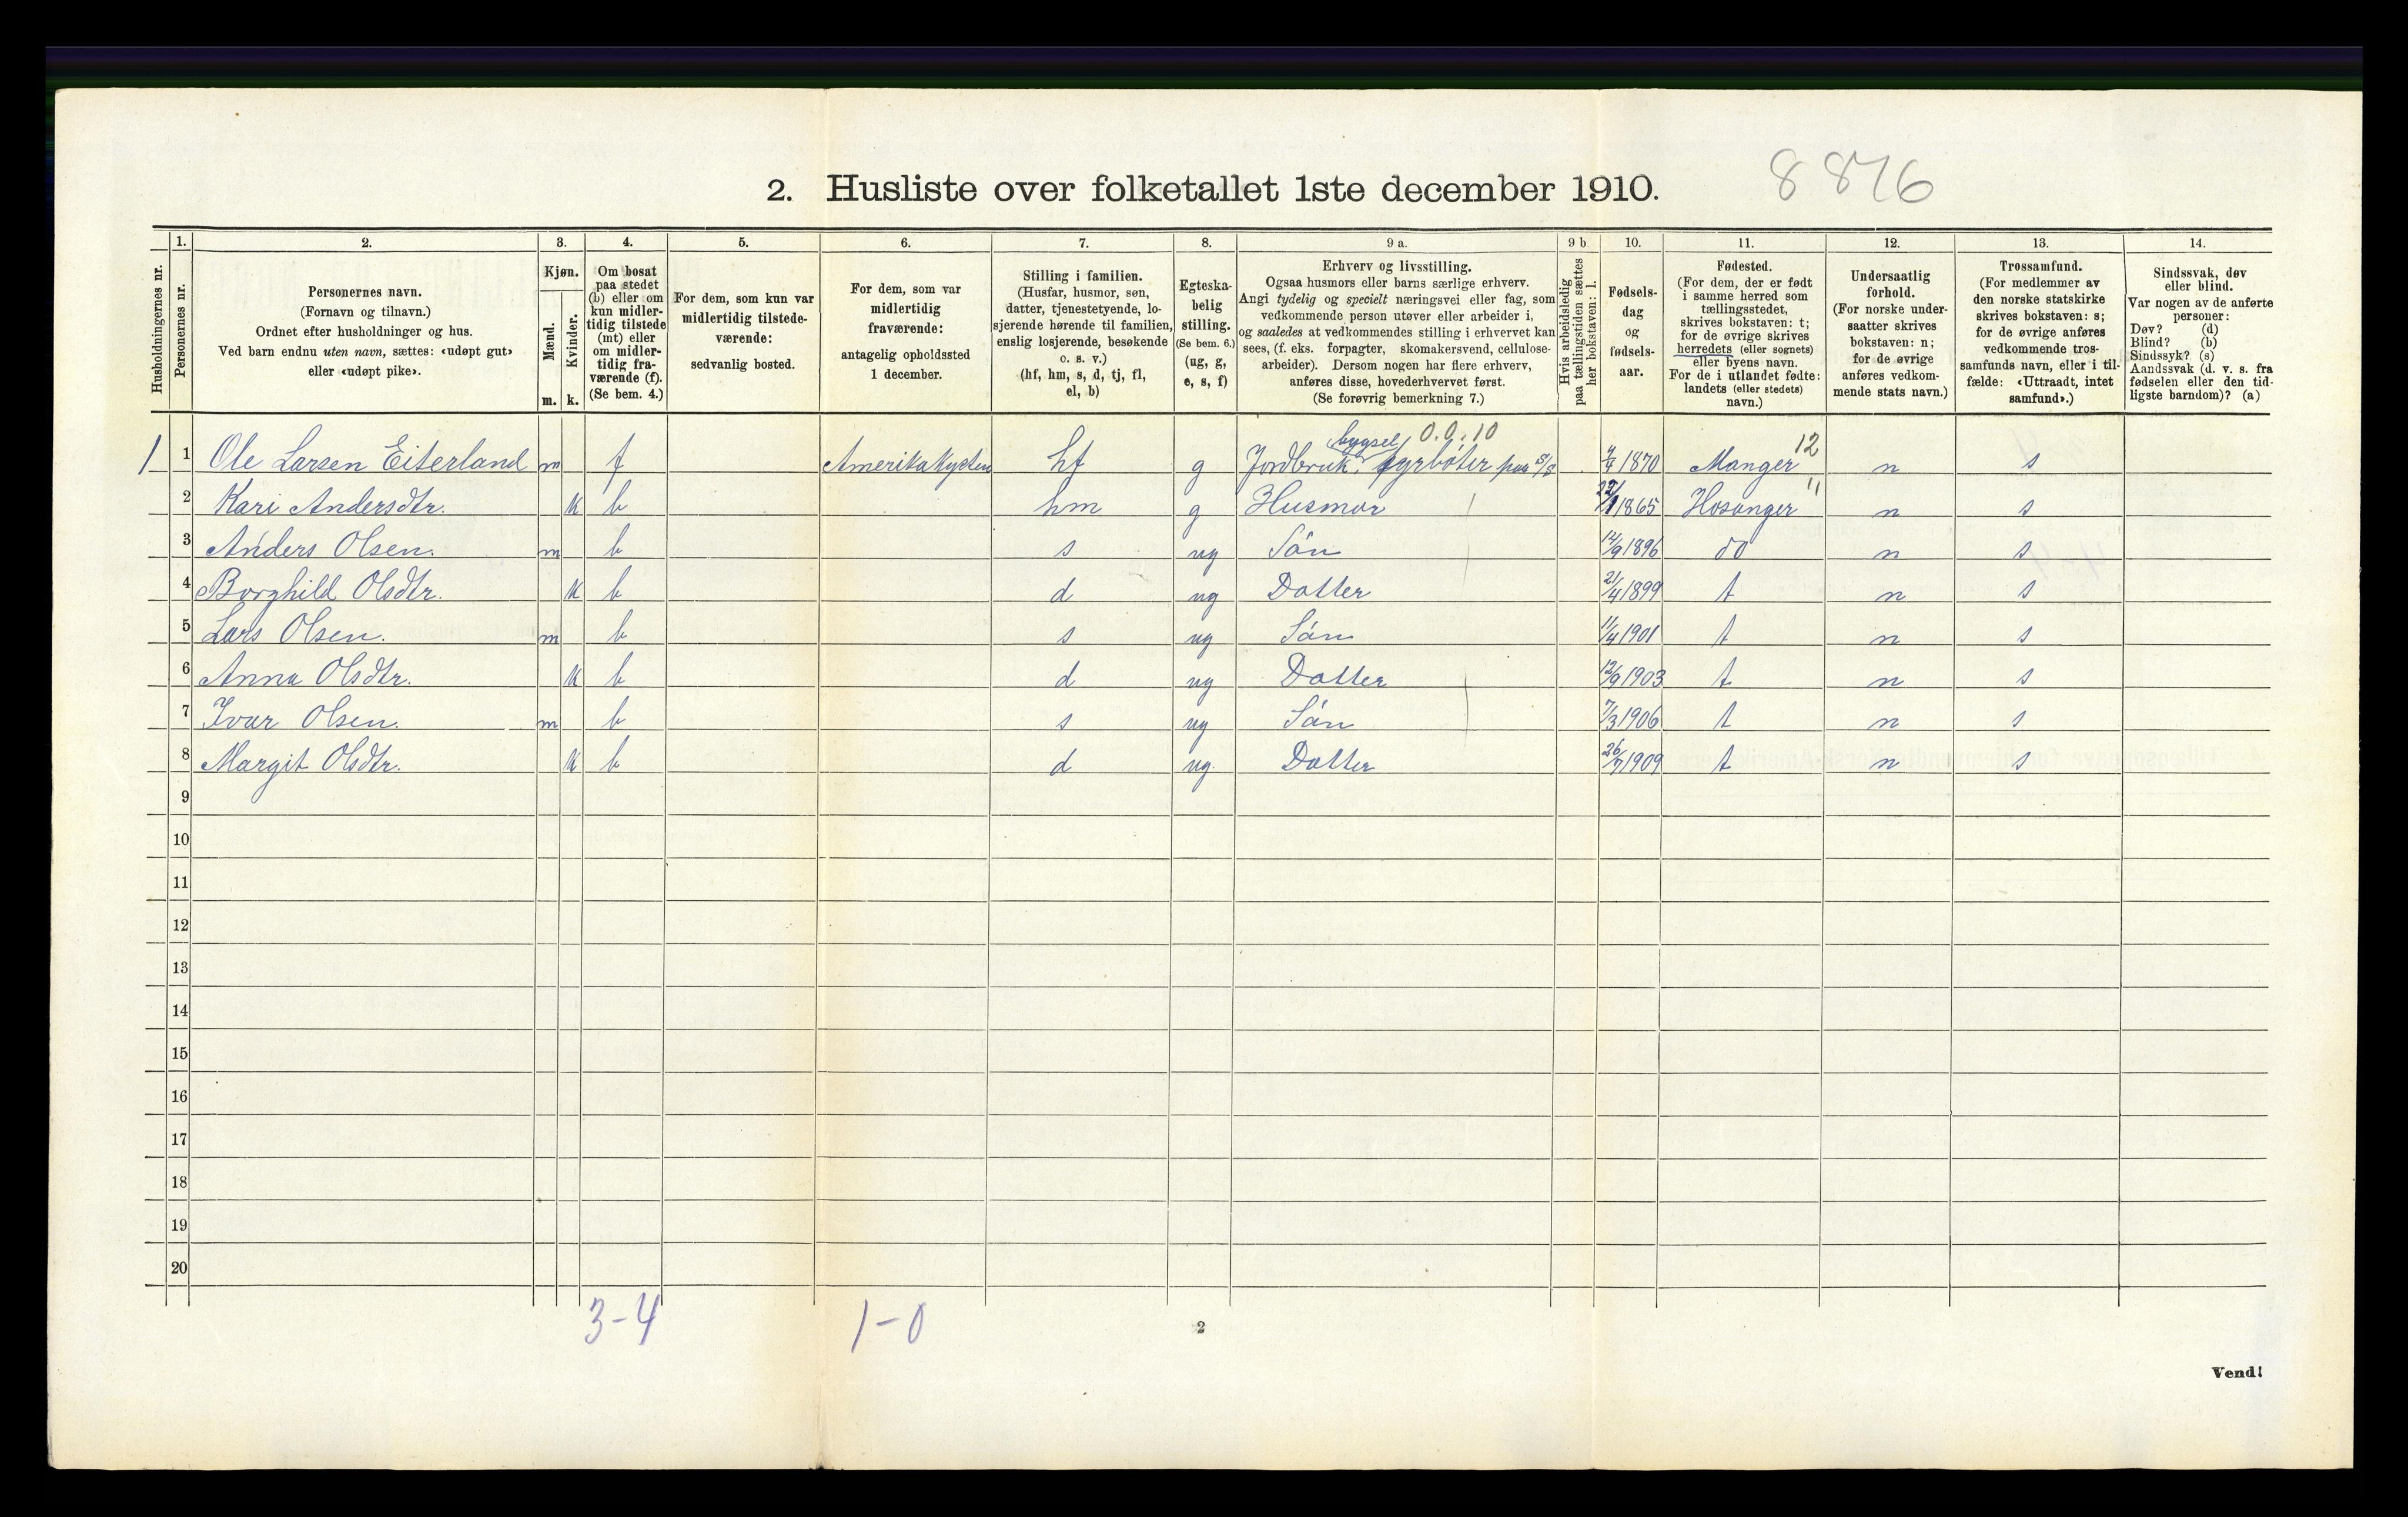 8876
2. Husliste over folketallet 1ste december 1910.
Husholdningernes nr.
1.
Personernes nr.
2.
Personernes navn.
(Fornavn og tilnavn.)
Ordnet efter husholdninger og hus.
Ved barn endnu uten navn, sættes: «udøpt gut»
eller «udøpt pike».
3.
Kjøn.
Mænd.
Kvinder.
m. k.
4.
Om bosat
paa stedet
(b) eller om
kun midler-
tidig tilstede
(mt) eller
om midler-
tidig fra-
værende (f).
(Se bem. 4.)
5.
For dem, som kun var
midlertidig tilstede-
værende:
sedvanlig bosted.
6.
For dem, som var
midlertidig
fraværende:
antagelig opholdssted
1 december.
7.
Stilling i familien.
(Husfar, husmor, søn,
datter, tjenestetyende, lo-
sjerende hørende til familien,
enslig losjerende, besøkende
o. s. v.)
(hf, hm, s, d, tj, fl,
el, b)
8.
Egteska-
belig
stilling.
(Se bem. 6.)
(ug, g,
e, s, f)
9 a.
Erhverv og livsstilling.
Ogsaa husmors eller barns særlige erhverv.
Angi tydelig og specielt næringsvei eller fag, som
vedkommende person utøver eller arbeider i,
og saaledes at vedkommendes stilling i erhvervet kan
sees, (f. eks. forpagter, skomakersvend, cellulose-
arbeider). Dersom nogen har flere erhverv,
anføres disse, hovederhvervet først.
(Se forøvrig bemerkning 7.)
9 b.
Hvis arbeidsledig
paa tællingstiden sættes
her bokstaven: l.
10.
Fødsels-
dag
og
fødsels-
aar.
11.
Fødested.
(For dem, der er født
i samme herred som
tællingsstedet,
skrives bokstaven: t;
for de øvrige skrives
herredets (eller sognets)
eller byens navn.
For de i utlandet fødte:
landets (eller stedets)
navn.)
12.
Undersaatlig
forhold.
(For norske under-
saatter skrives
bokstaven: n;
for de øvrige
anføres vedkom-
mende stats navn.)
13.
Trossamfund.
(For medlemmer av
den norske statskirke
skrives bokstaven: s;
for de øvrige anføres
vedkommende tros-
samfunds navn, eller i til-
fælde: «Uttraadt, intet
samfund».)
14.
Sindssvak, døv
eller blind.
Var nogen av de anførte
personer:
Døv? (d)
Blind? (b)
Sindssyk? (s)
Aandssvak (d. v. s. fra
fødselen eller den tid-
ligste barndom)? (a)
bygsel 0.0.10 12
1 1 Ole Larsen Eiterland m f Amerikakysten hf g Jordbruk. fyrbøter paa S/S 1870 Manger n s
2 Kari Andersdtr. k b hm g Husmor 1865 Hosanger 11 n s
3 Anders Olsen. m b s ug Sön 14/9 1896 do n s
4 Borghild Olsdtr. k b d ug Datter 21/4 1899 t n s
5 Lars Olsen. m b s ug Sön 11/4 1901 t n s
6 Anna Olsdtr. k b d ug Datter 12/9 1903 t n s
7 Ivar Olsen. m b s ug Sön 7/3 1906 t n s
8 Margit Olsdtr. k b d ug. Datter 26/7 1909 t n s
9
10
11
12
13
14
15
16
17
18
19
20
3-4 1-0
2
Vend!